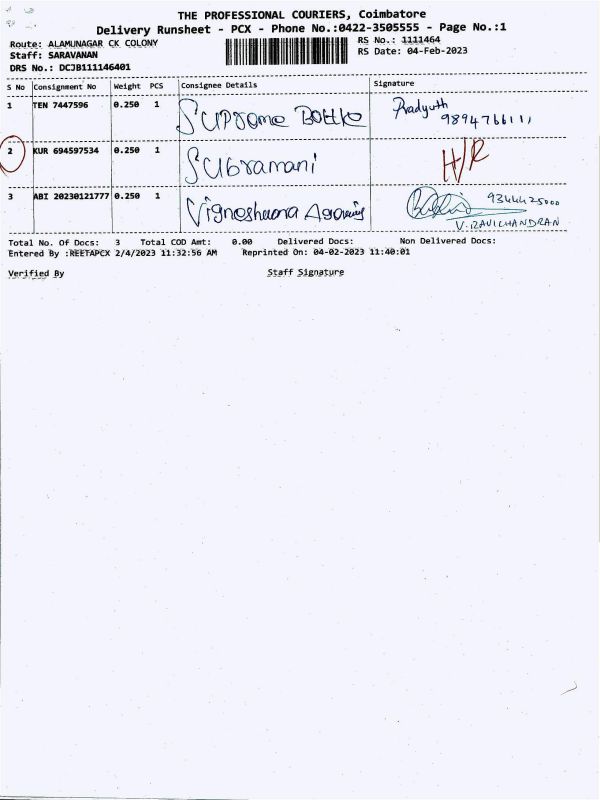 THE PROFESSIONAL COURIERS, Coimbatore
Delivery Runsheet - PCX - Phone No.:0422-3505555 - Page No.:1
Route: ALAMUNAGAR CK COLONY
RS No.: 1111464
Staff: SARAVANAN
RS Date: 04-Feb-2023
DRS No.: DCJB111146401
S No Consignment No Weight PCS Consignee Details Signature
1 TEN 7447596 0.250 1 Suprome Bottle Pradyuth
9894766111
2 KUR 694597534 0.250 1 Subramani H/R
3 ABI 20230121777 0.250 1 Vigneshwara 9344425000
V. RAVICHANDRAN
Total No. Of Docs: 3 Total COD Amt: 0.00 Delivered Docs: Non Delivered Docs:
Entered By :REETAPCX 2/4/2023 11:32:56 AM Reprinted On: 04-02-2023 11:40:01
Verified By Staff Signature